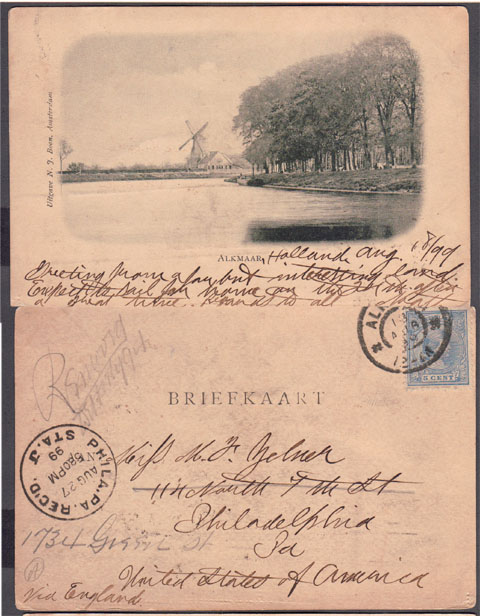 Uitgave N. J. Boon, Amsterdam.
ALKMAAR
Holland Aug. 18/99
Greeting from a far but interesting land.
Expect to sail for home on the
a great time. to all
BRIEFKAART
AL
5 CENT
PHILA. PA. REC'D.
AUG 27
630PM
99
STA. J
Miss M. F.
114 North 7th St
Philadelphia
Pa
United States of America
1734 St
Via England